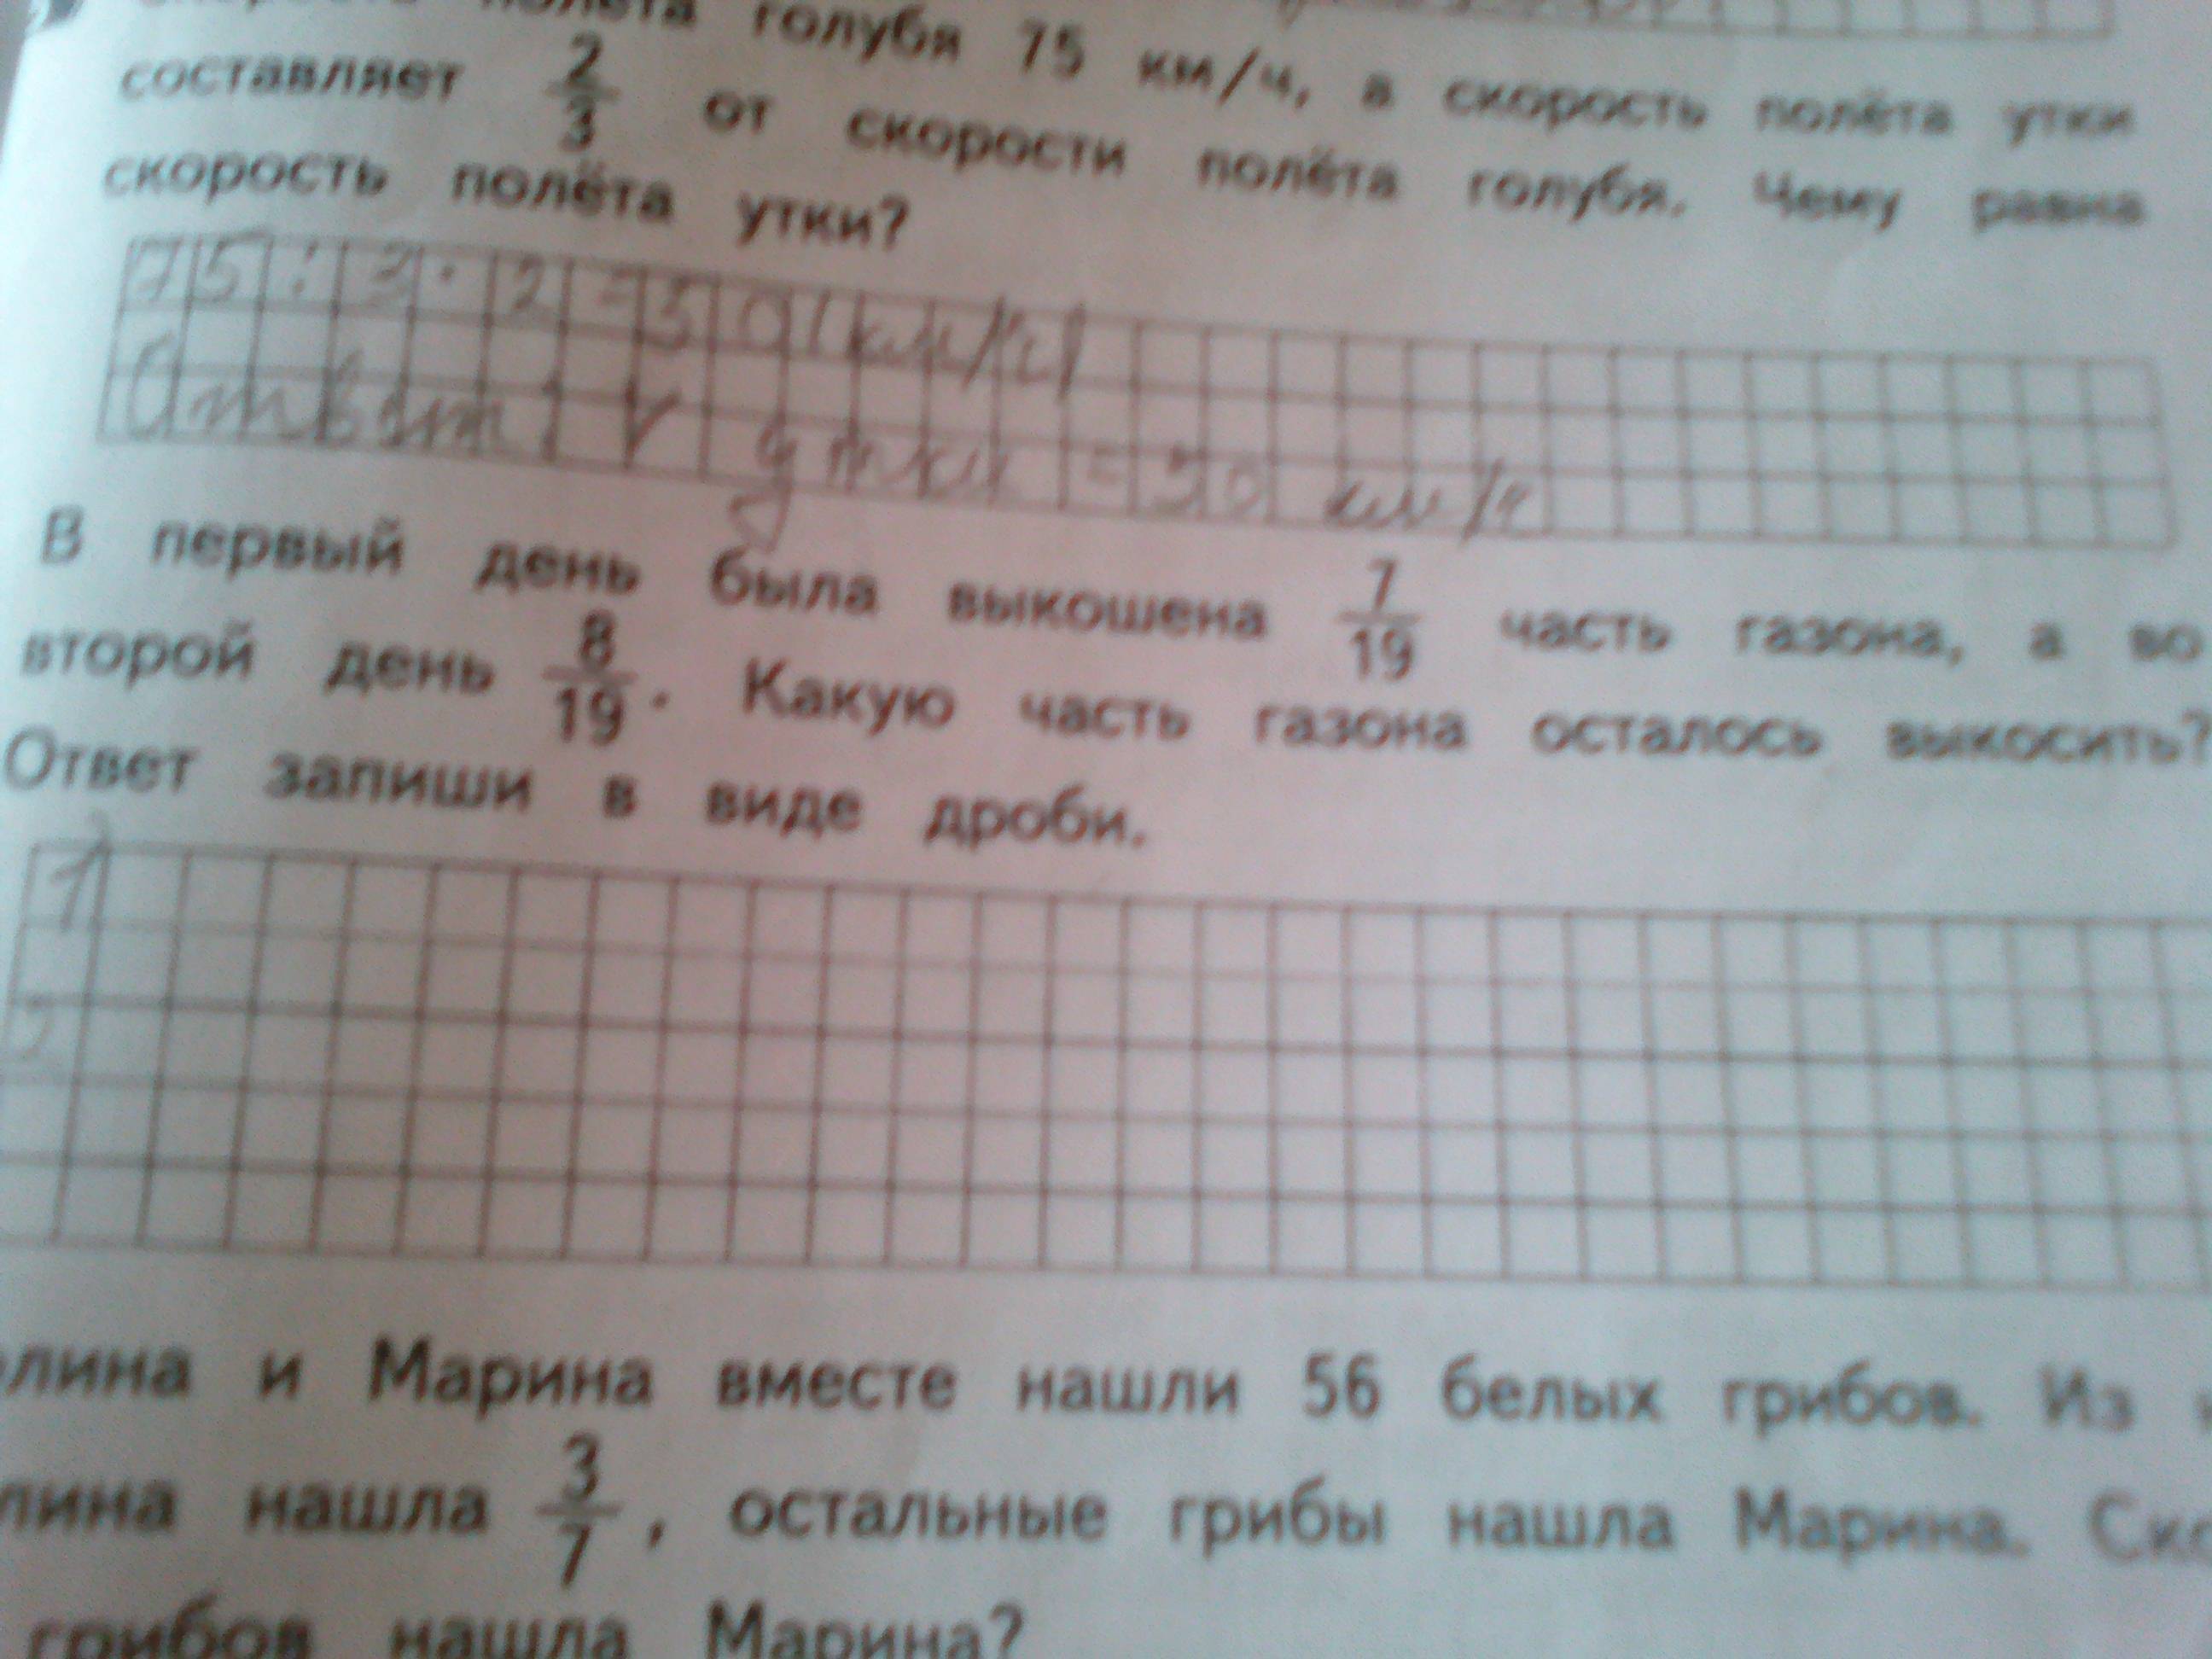 полёта голубя 75 км/ч, а скорость полёта утки
составляет 2/3 от скорости полёта голубя. Чему равна
скорость полёта утки?
75:3·2=50(км/ч)
Ответ: V утки =50 км/ч
В первый день была выкошена 7/19 часть газона, а во
второй день 8/19. Какую часть газона осталось выкосить?
Ответ запиши в виде дроби.
1)
лина и Марина вместе нашли 56 белых грибов. Из
лина нашла 3/7, остальные грибы нашла Марина.
грибов нашла Марина?